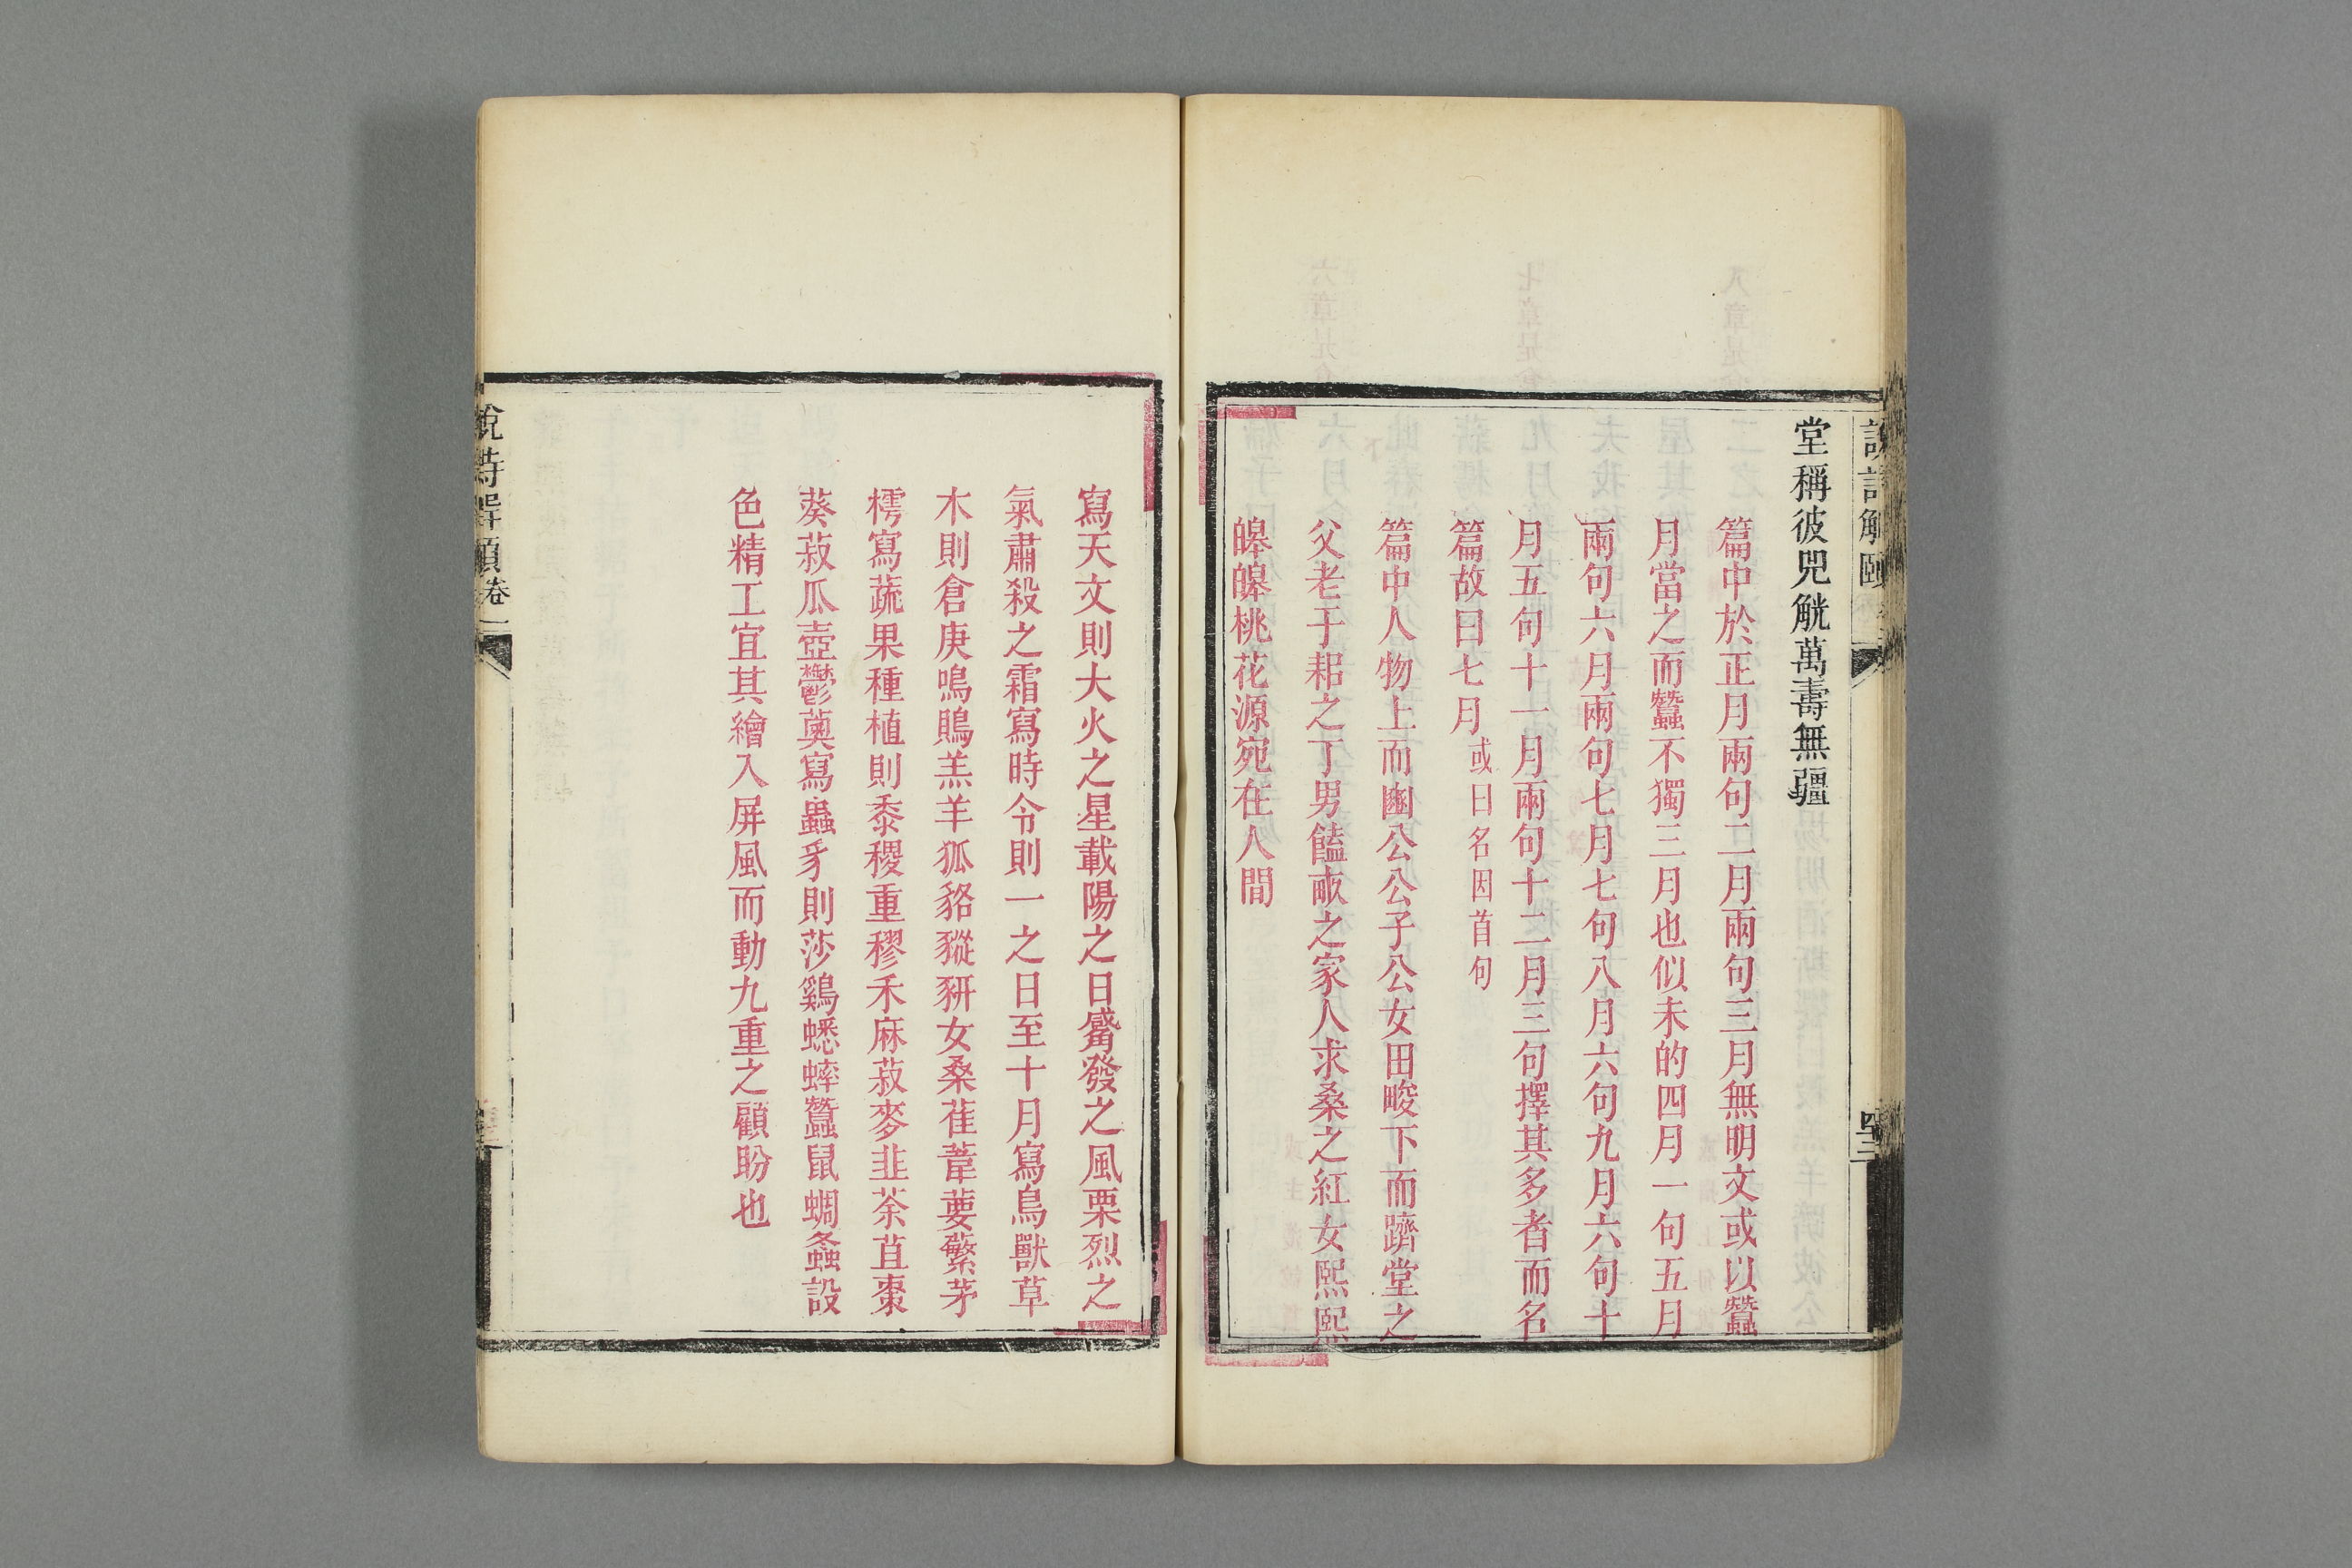 說詩解頤
堂稱彼兕觥萬壽無疆
篇中於正月兩句二月兩句三月無明文或以蠶
月當之而蠶不獨三月也似未的四月一句五月
兩句六月兩句七月七句八月六句九月六句十
月五句十一月兩句十二月三句擇其多者而名
篇故曰七月或曰名因首句
篇中人物上而豳公公子公女田畯下而躋堂之
父老于耜之丁男饁畝之家人求桑之紅女熙熙
皞皞桃花源宛在人間
寫天文則大火之星載陽之日觱發之風栗烈之
氣肅殺之霜寫時令則一之日至十月寫鳥獸草
木則倉庚鳴鵙羔羊狐貉豵豜女桑萑葦葽蘩茅
樗寫蔬果種植則黍稷重穋禾麻菽麥韭荼苴棗
葵菽瓜壺鬱薁寫蟲豸則莎鷄蟋蟀蠶鼠蜩螽設
色精工宜其繪入屏風而動九重之顧盼也
說詩解頤卷一